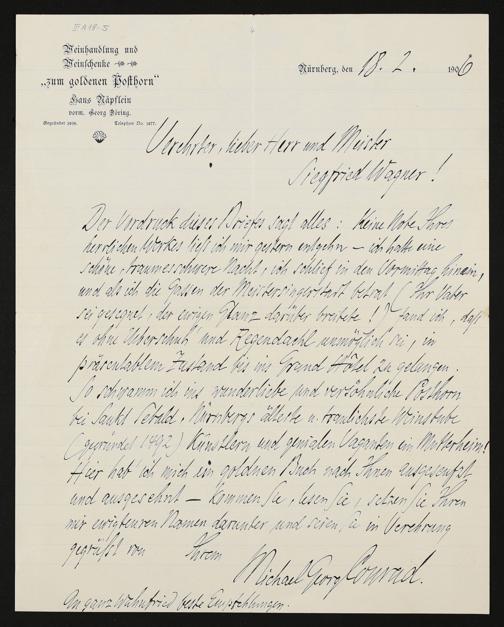 II A 18-5
Weinhandlung und
Weinschenke
„zum goldenen Posthorn“
Hans Näpflein
vorm. Georg Böring.
Gegründet 1498. Telephon No. 1877.
Nürnberg, den 18. 2. 1906
Verehrter, lieber Herr und Meister
Siegfried Wagner!
Der Vordruck dieses Briefes sagt alles: keine Note Ihres
herrlichen Werkes ließ ich mir gestern entgehn – ich hatte eine
schöne, traumesschwere Nacht, ich schlief in den Vormittag hinein,
und als ich die Gassen der Meistersingerstadt betrat (Ihr Vater
sei gesegnet, der ewigen Glanz darüber breitete!) fand ich, daß
es ohne Überschuh und Regendachl unmöglich sei, in
präsentablem Zustand bis ins Grand Hôtel zu gelangen.
So schwamm ich ins wunderliebe und versöhnliche Posthorn
bei Sankt Sebald, Nürnbergs älteste u. traulichste Weinstube
(gegründet 1492) Künstlern und genialen Vaganten ein Mutterheim!
Hier hab ich mich im goldnen Buch nach Ihnen ausgeseufzt
und ausgesehnt – kommen Sie, lesen Sie, setzen Sie Ihren
mir ewigteuren Namen darunter und seien Sie in Verehrung
gegrüßt von Ihrem
Michael Georg Conrad.
An ganz Wahnfried beste Empfehlungen.